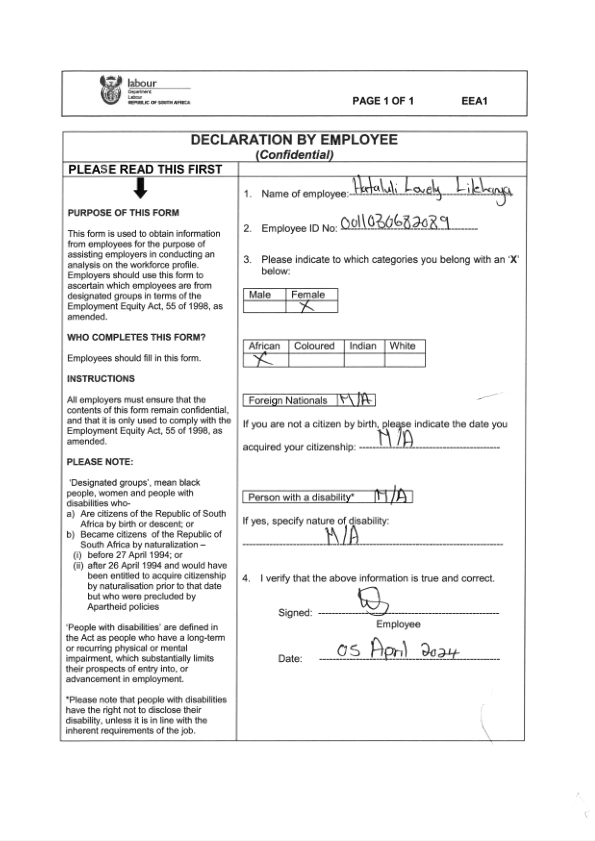 labour
Department
Labour
REPUBLIC OF SOUTH AFRICA
PAGE 1 OF 1 EEA1
DECLARATION BY EMPLOYEE
(Confidential)
PLEASE READ THIS FIRST
PURPOSE OF THIS FORM
This form is used to obtain information
from employees for the purpose of
assisting employers in conducting an
analysis on the workforce profile.
Employers should use this form to
ascertain which employees are from
designated groups in terms of the
Employment Equity Act, 55 of 1998, as
amended.
WHO COMPLETES THIS FORM?
Employees should fill in this form.
INSTRUCTIONS
All employers must ensure that the
contents of this form remain confidential,
and that it is only used to comply with the
Employment Equity Act, 55 of 1998, as
amended.
PLEASE NOTE:
'Designated groups', mean black
people, women and people with
disabilities who-
a) Are citizens of the Republic of South
Africa by birth or descent; or
b) Became citizens of the Republic of
South Africa by naturalization –
(i) before 27 April 1994; or
(ii) after 26 April 1994 and would have
been entitled to acquire citizenship
by naturalisation prior to that date
but who were precluded by
Apartheid policies
'People with disabilities' are defined in
the Act as people who have a long-term
or recurring physical or mental
impairment, which substantially limits
their prospects of entry into, or
advancement in employment.
*Please note that people with disabilities
have the right not to disclose their
disability, unless it is in line with the
inherent requirements of the job.
1. Name of employee: Lovely
2. Employee ID No: 0011030682089
3. Please indicate to which categories you belong with an 'X'
below:
Male Female
X
African Coloured Indian White
X
Foreign Nationals N/A
If you are not a citizen by birth, please indicate the date you
acquired your citizenship: N/A
Person with a disability* N/A
If yes, specify nature of disability:
N/A
4. I verify that the above information is true and correct.
Signed:
Employee
Date: 05 April 2024